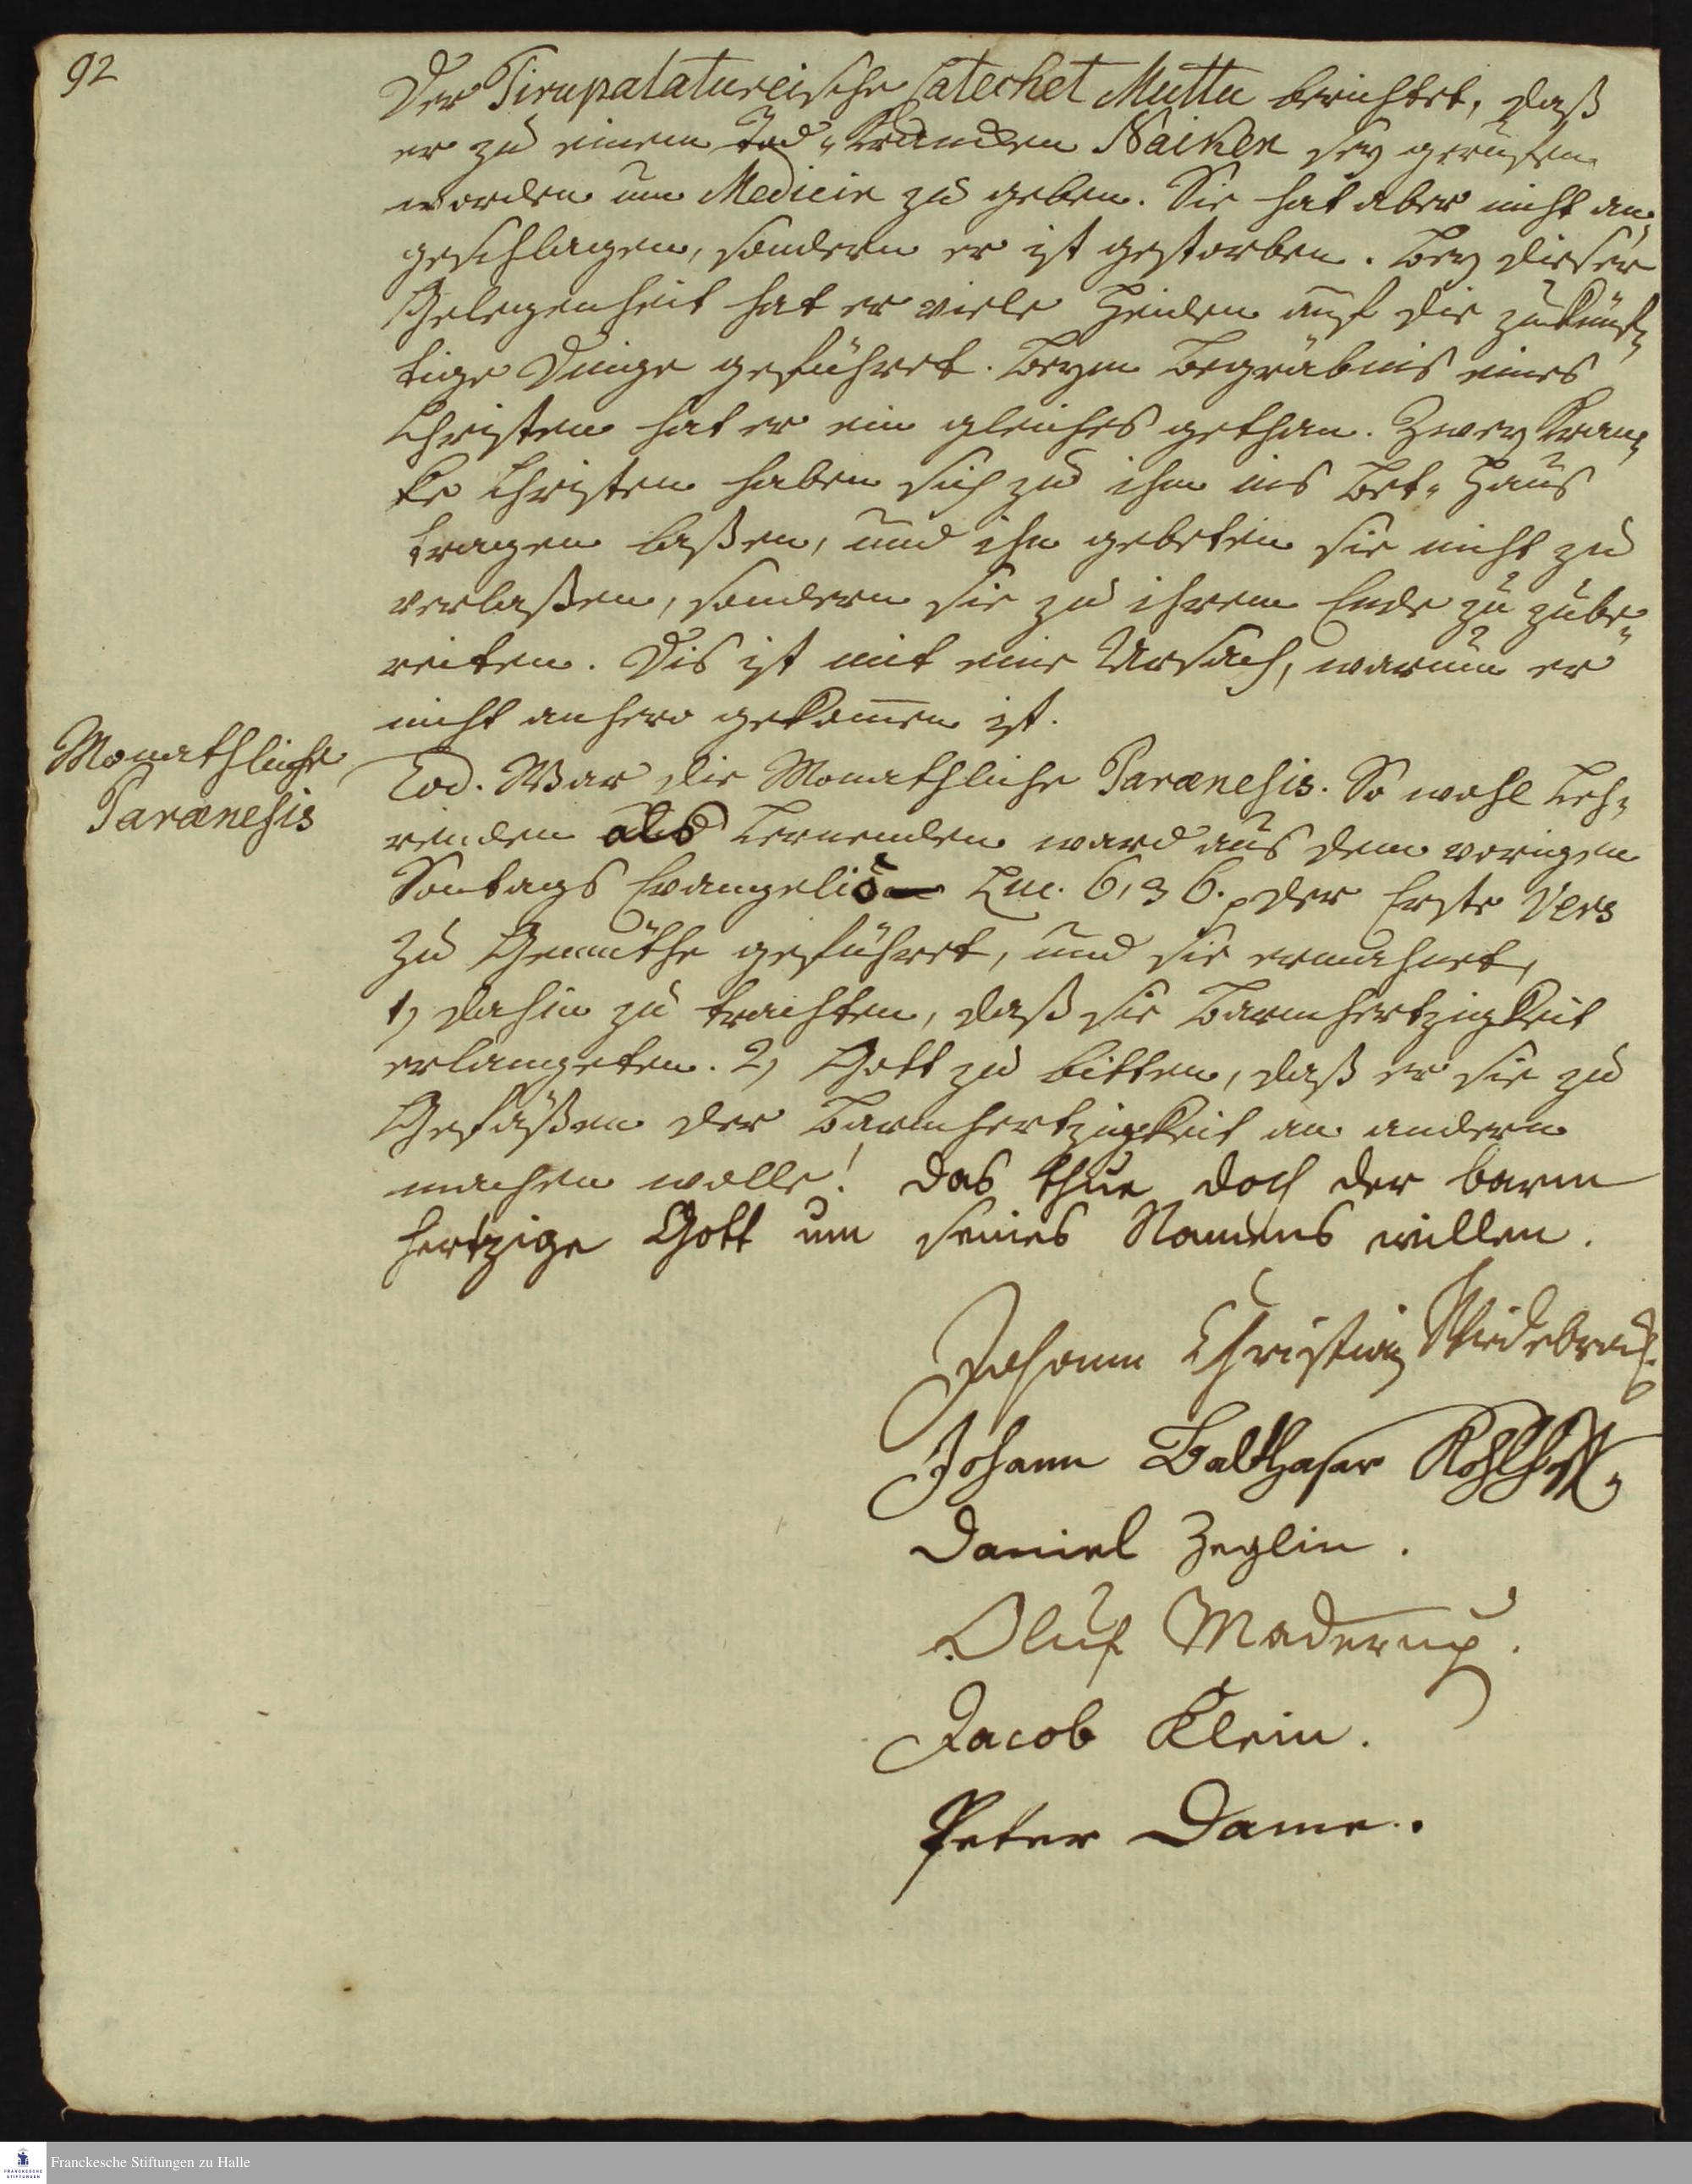 92
Der Tirupalatureische Catechet Muttu berichtet, daß
er zu einem Tod-Krancken Naiken sey gerufen
worden um Medicin zu geben. Sie hat aber nicht an-
geschlagen, sondern er ist gestorben. Bey dieser
Gelegenheit hat er viele Heiden auf die zukünf-
tige Dinge geführet. Beym Begräbnis eines
Christen hat er ein gleiches gethan. Zwey Kran-
ke Christen haben sich zu ihm ins Bet-Haus
tragen laßen, und ihn gebeten sie nicht zu
verlaßen, sondern sie zu ihrem Ende zu zube-
reiten. Dis ist mit eine Ursach, warum er
nicht anhero gekom̄en ist.
Monathliche
Parænesis
Eod. War die Monathliche Parænesis. So wohl Leh-
renden als Lernenden ward aus dem vorigen
Sontags Evangelio Luc. 6, 36. p der Erste Vers
zu Gemüthe geführet, und sie ermahnet,
1) dahin zu trachten, daß sie Barmhertzigkeit
erlangeten. 2) Gott zu bitten, daß er sie zu
Gefäßen der Barmhertzigkeit an andern
machen wolle! Das thue doch der barm
hertzige Gott um seines Namens willen.
Johann Christian Wiedebrock.
Johann Balthasar Kohlhoff.
Daniel Zeglin.
Oluf Maderup.
Jacob Klein.
Peter Dame.
Franckesche Stiftungen zu Halle
FRANCKESCHE
STIFTUNGEN